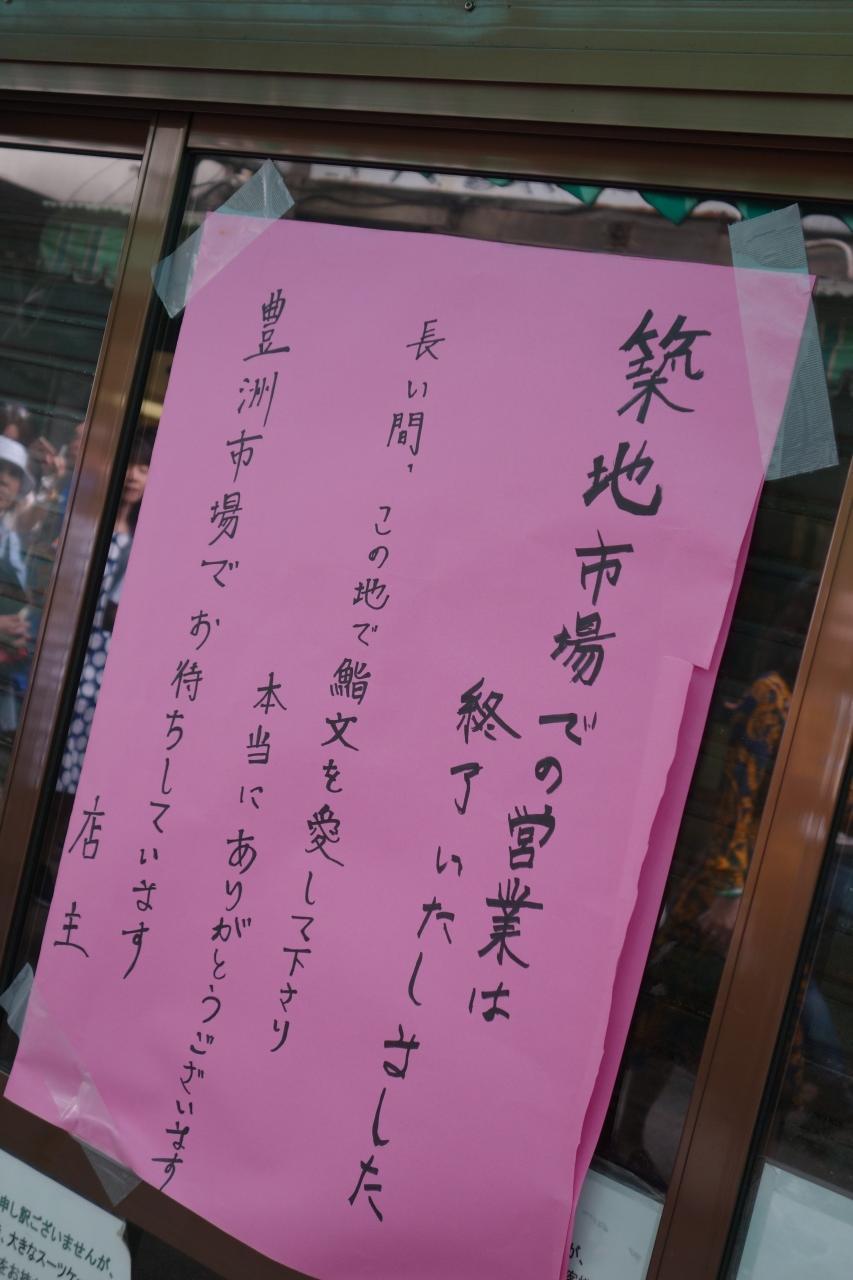 築地市場での営業は
終了いたしました
長い間、この地で鮨文を愛して下さり
本当にありがとうございます
豊洲市場でお待ちしています
店主
申し訳ございませんが、
大きなスーツケ
が、